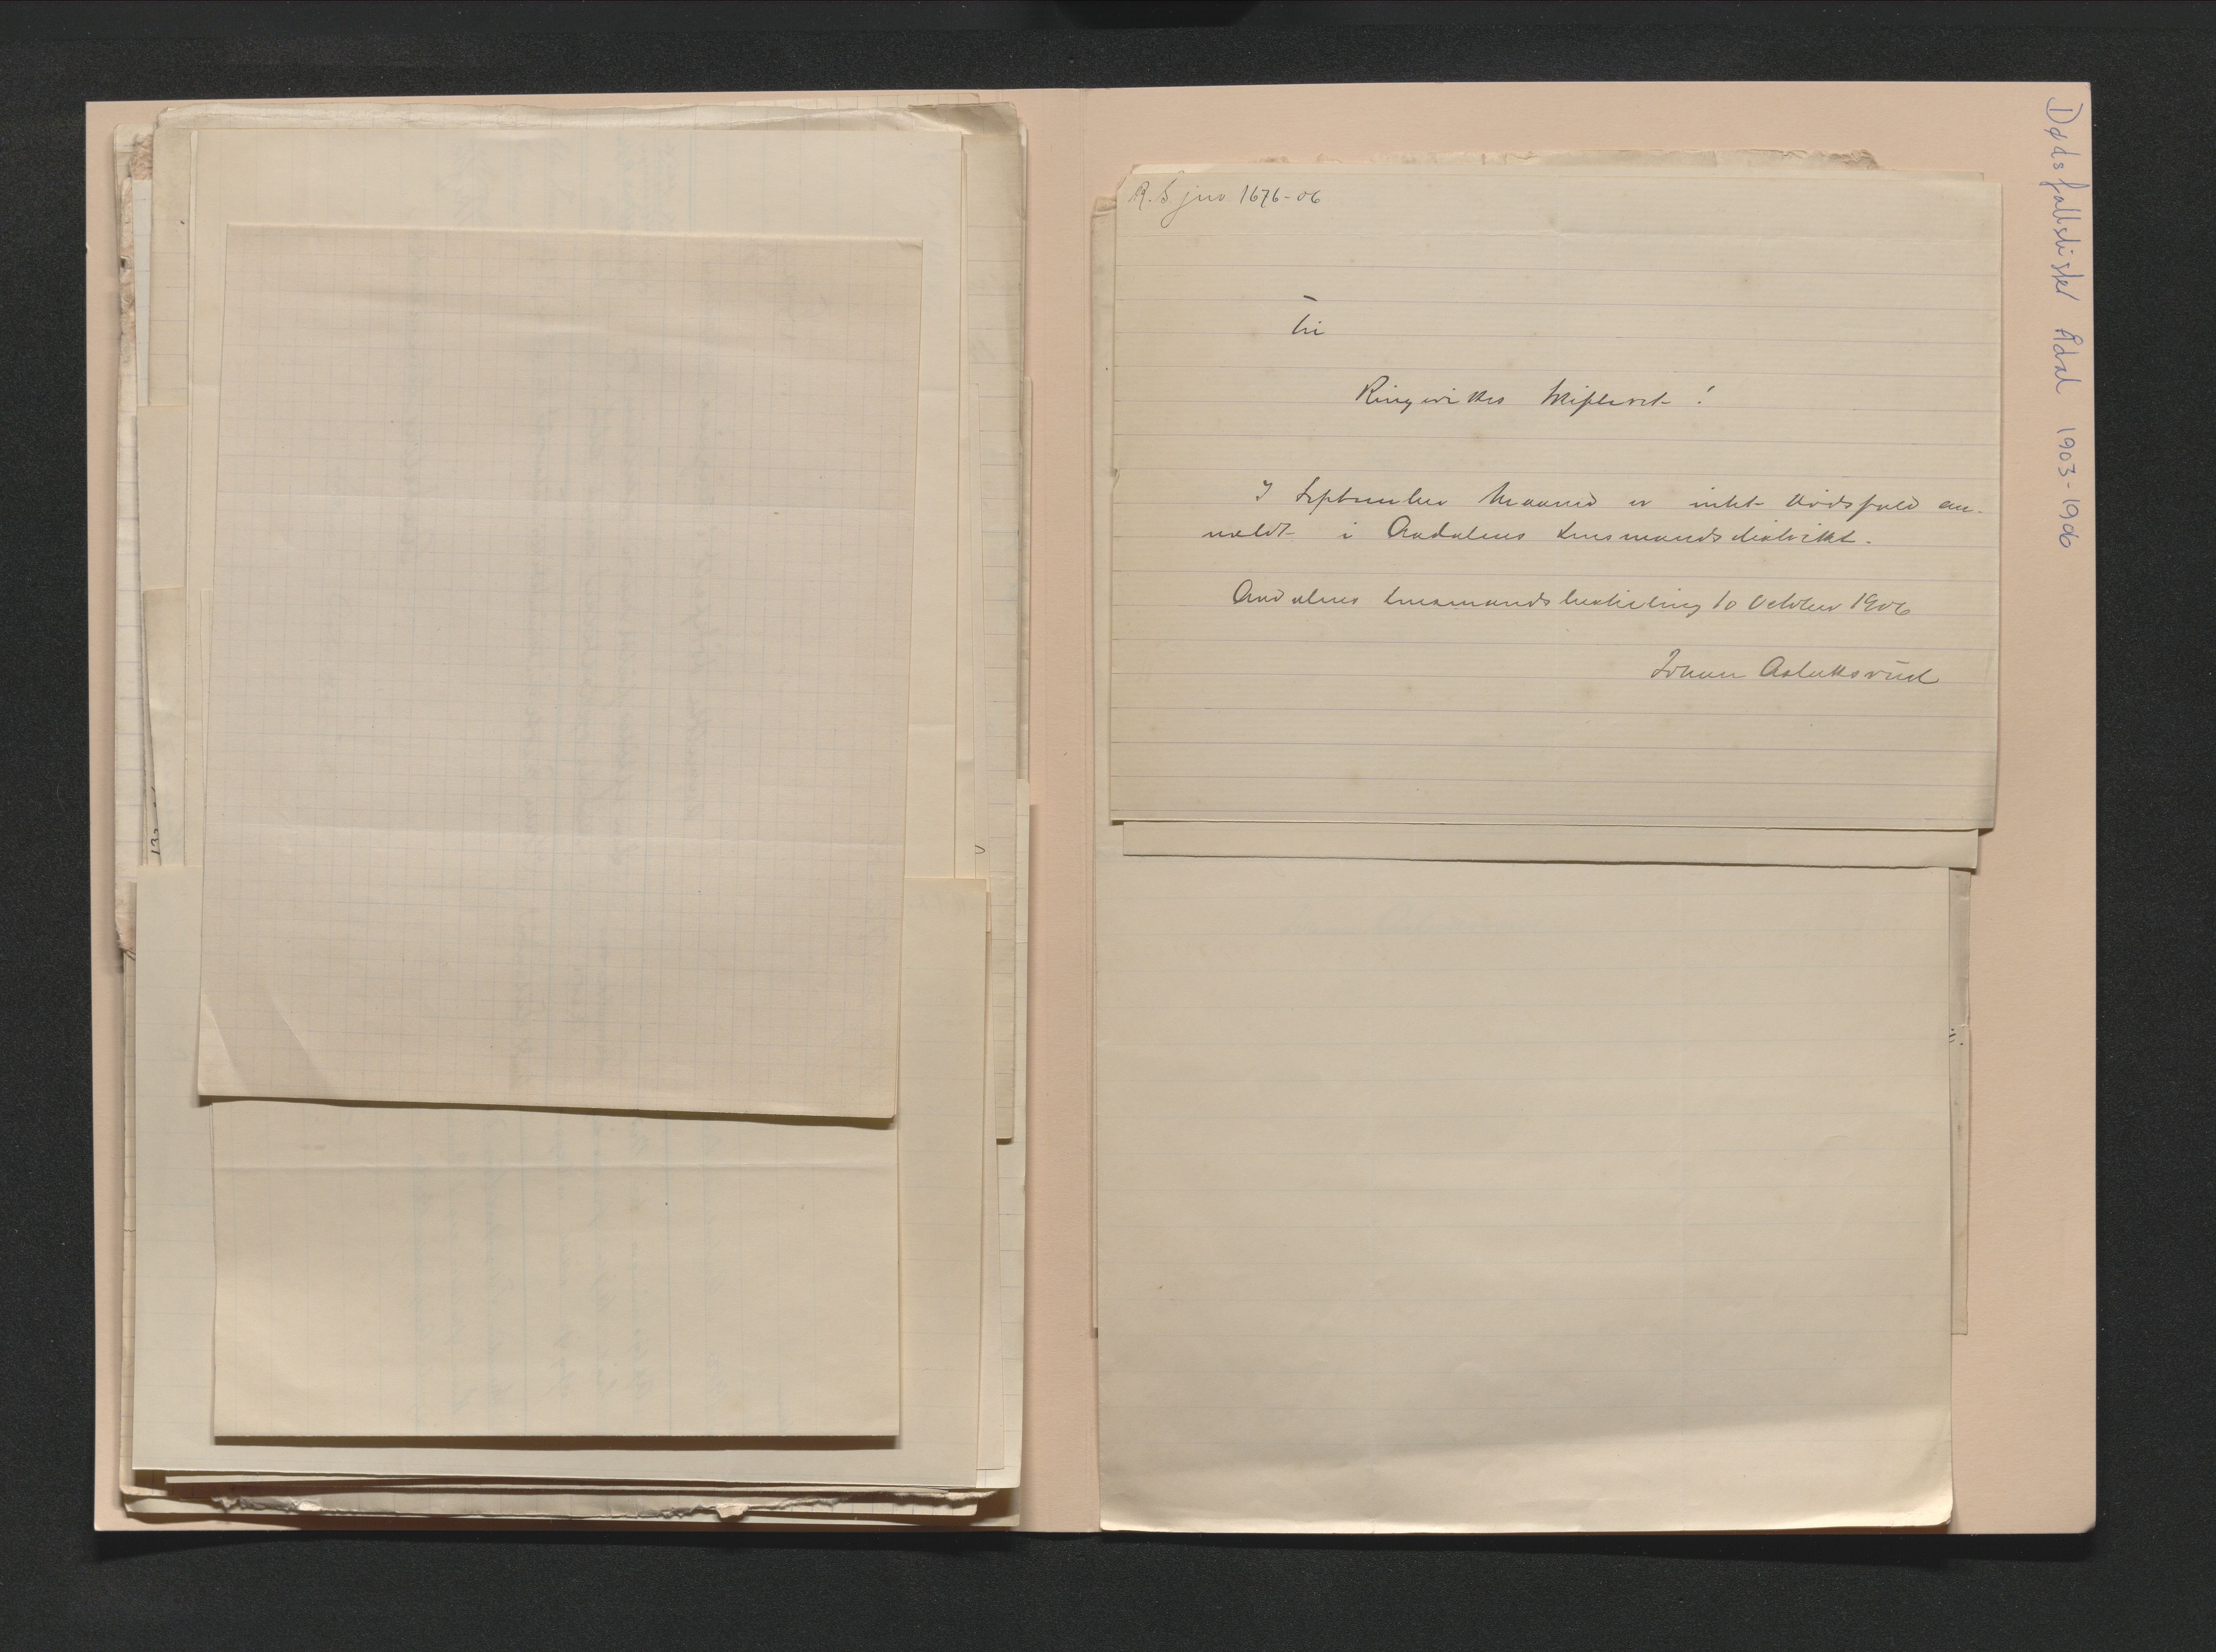 R. S jno 1676-06
Til
Ringerikes Skifteret!
I September Maaned er intet Dødsfald an-
meldt i Aadalens Lensmandsdistrikt.
Aadalens Lensmandsbestilling 10 October 1906
Johan Aslaksrud
Dødsfallslister Ådal 1903-1906